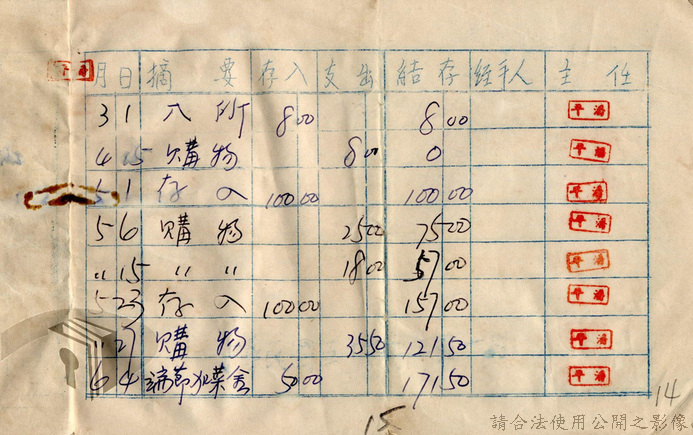 月 日 摘 要 存入 支出 結存 經手人 主 任
3 1 入所 8 00 8 00
4 15 購物 8 00 0
5 1 存入 100 00 100 00
5 6 購物 25 00 75 00
〃 15 〃 〃 18 00 57 00
5 23 存入 100 00 157 00
〃 27 購物 35 50 121 50
6 4 端節加菜金 50 00 171 50
14
15
請合法使用公開之影像